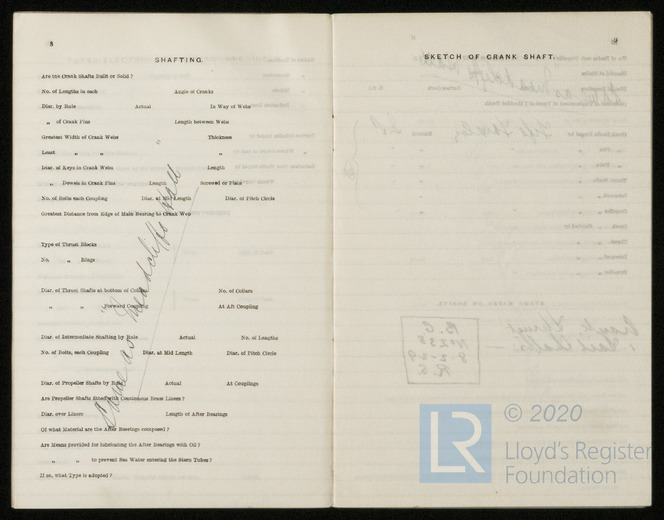 8
SHAFTING.
Are the Crank Shafts Built or Solid?
No. of Lengths in each Angle of Cranks
Diar. by Rule Actual In Way of Webs
„ of Crank Pins Length between Webs
Greatest Width of Crank Webs Thickness
Least „ „ „
Diar. of Keys in Crank Webs Length
„ Dowels in Crank Pins Length Screwed or Plain
No. of Bolts each Coupling Diar. at Mid Length Diar. of Pitch Circle
Greatest Distance from Edge of Main Bearing to Crank Web
Type of Thrust Blocks
No. „ Rings
Diar. of Thrust Shafts at bottom of Collars No. of Collars
„ „ Forward Coupling At Aft Coupling
Diar. of Intermediate Shafting by Rule Actual No. of Lengths
No. of Bolts, each Coupling Diar. at Mid Length Diar. of Pitch Circle
Diar. of Propeller Shafts by Rule Actual At Couplings
Are Propeller Shafts fitted with Continuous Brass Liners?
Diar. over Liners Length of After Bearings
Of what Material are the After Bearings composed?
Are Means provided for lubricating the After Bearings with Oil?
„ „ to prevent Sea Water entering the Stern Tubes?
If so, what Type is adopted?
Same as
9
SKETCH OF CRANK SHAFT.
© 2020
LR
Lloyd's Register
Foundation